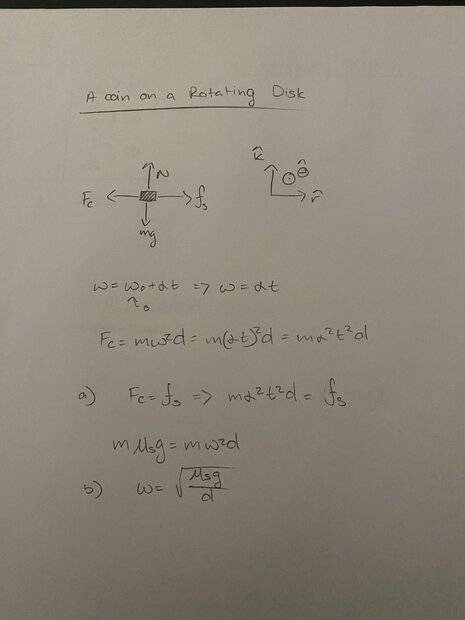 A coin on a Rotating Disk
N
Fc fs
mg
k̂ θ̂
r̂
ω = ω₀ + αt => ω = αt
↗0
Fc = mω²d = m(αt)²d = mα²t²d
a) Fc = fs => mα²t²d = fs
m μsg = mω²d
b) ω = √(μsg/d)